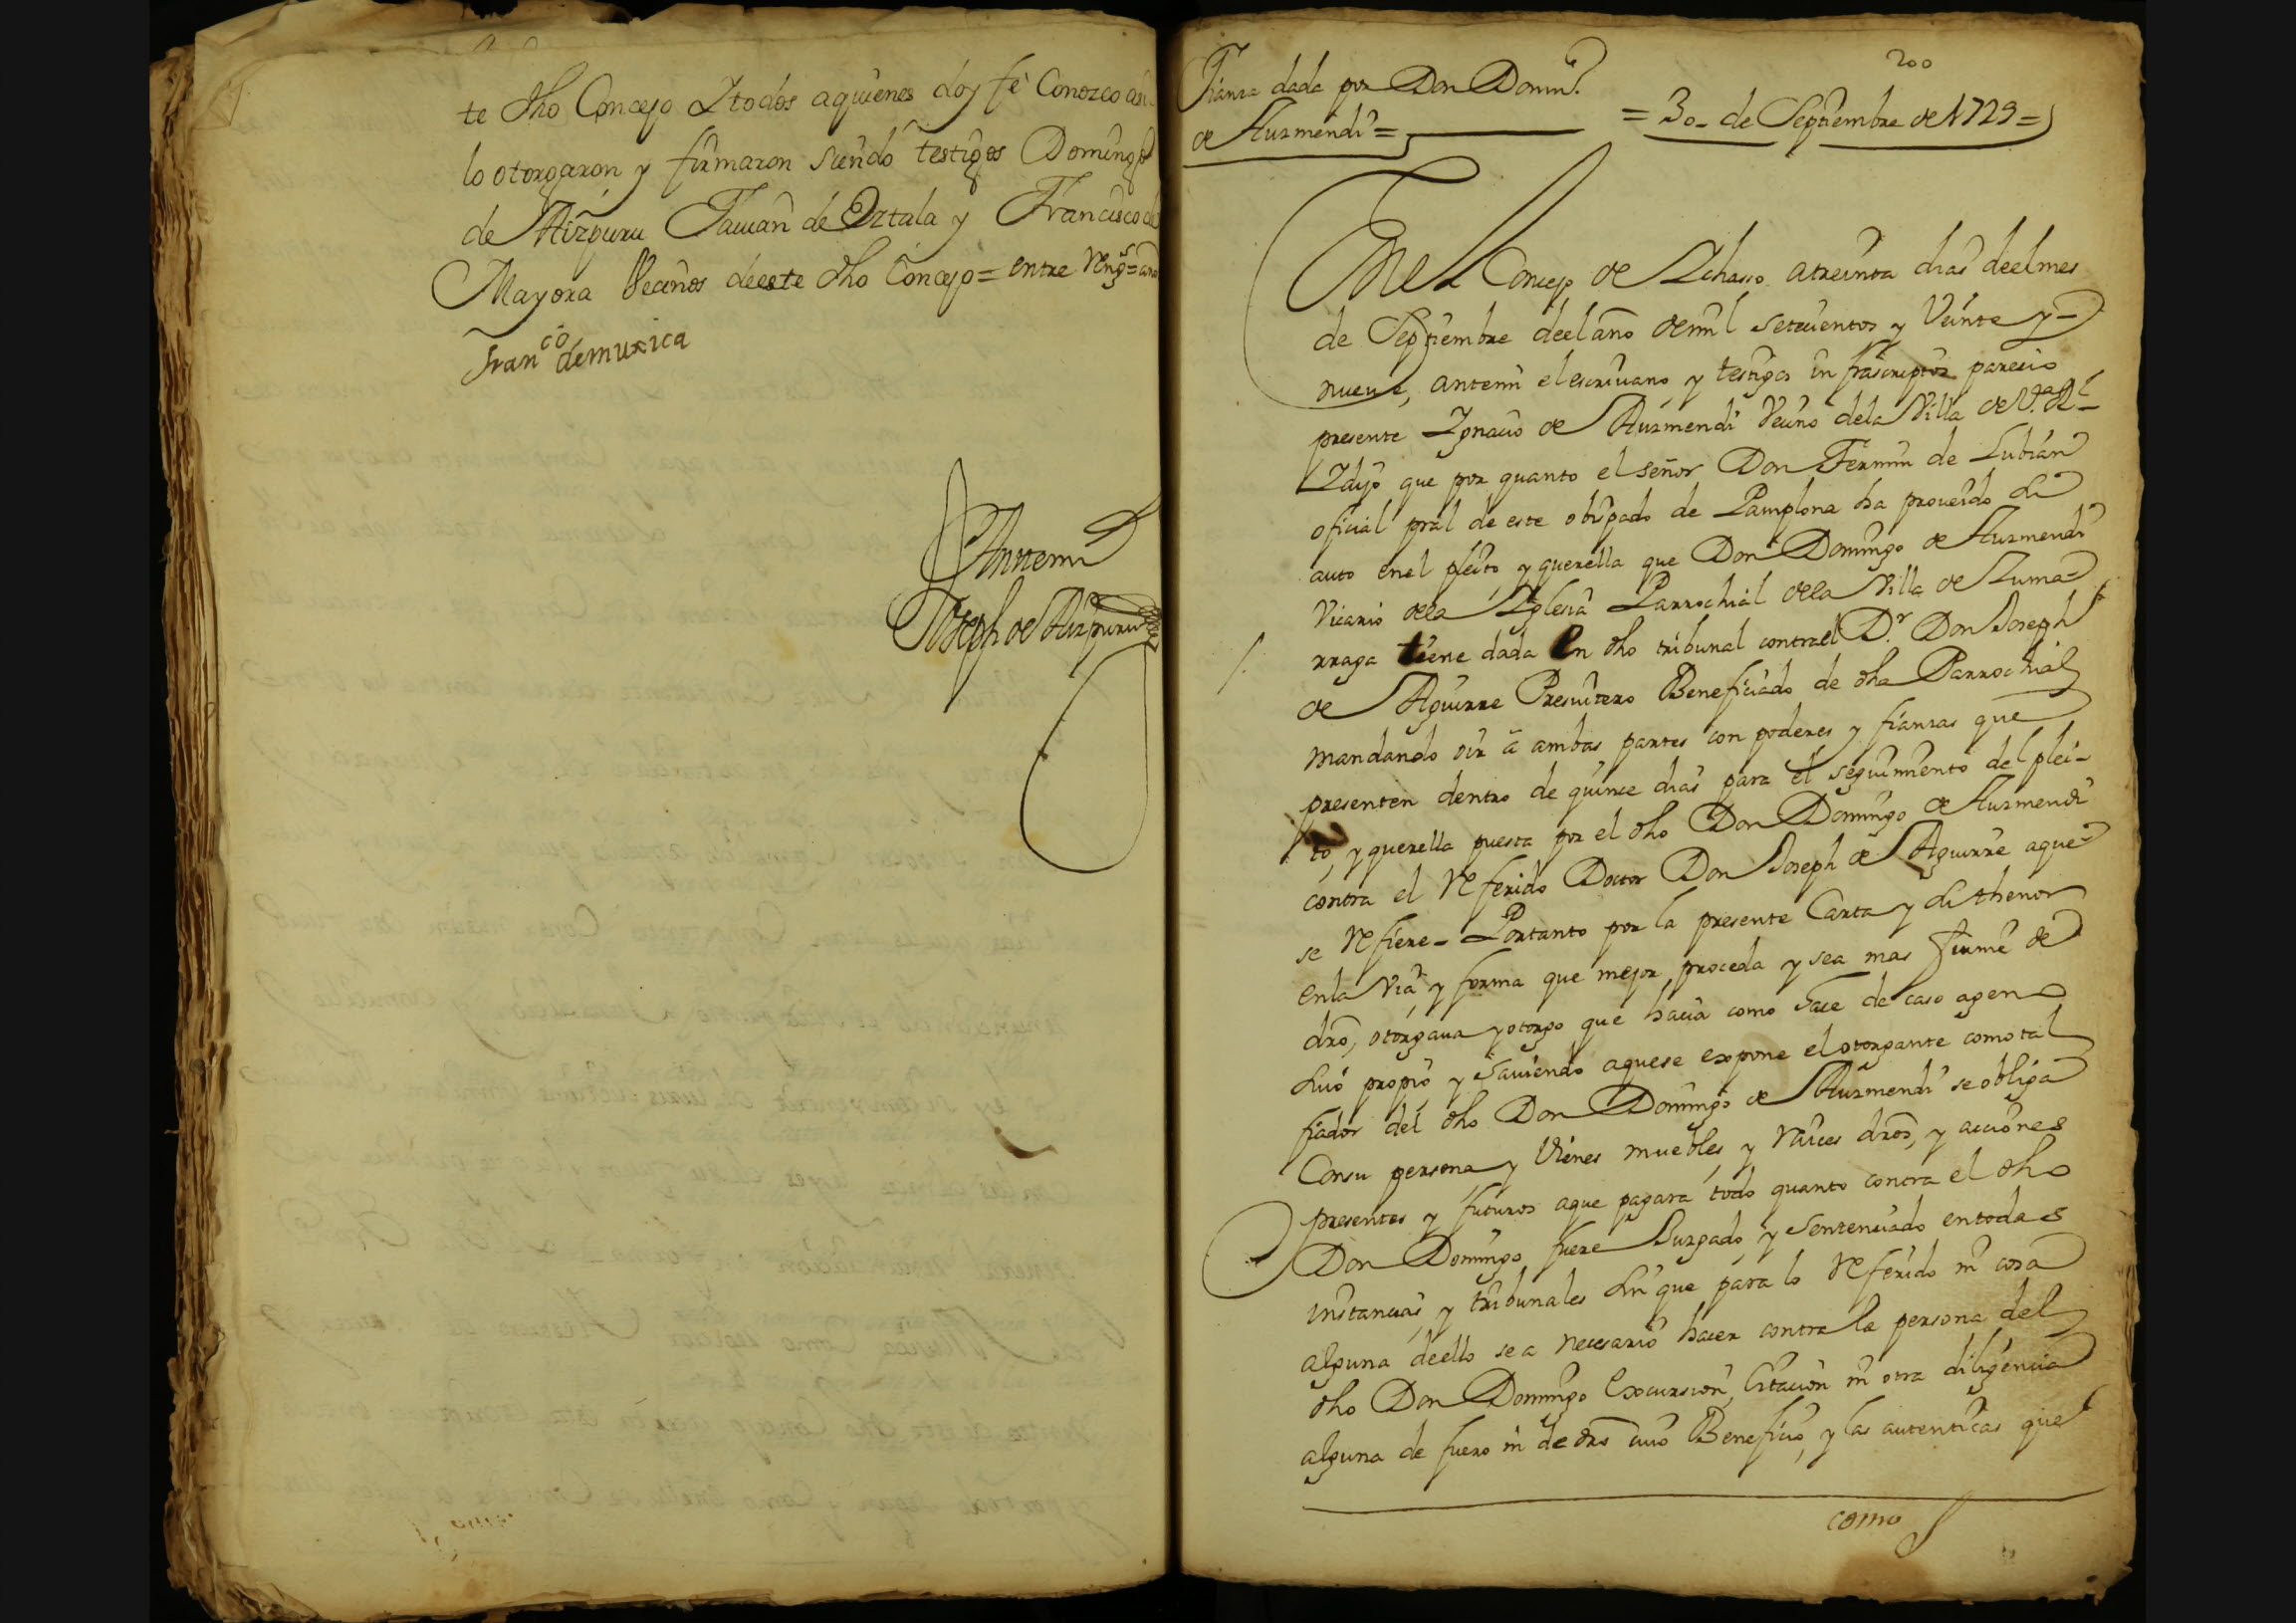 te dho Concejo Y todos aquienes doy fe Conozco asi
lo otorgaron y firmaron siendo testigos Domingo
de Aizpuru Juan de Oztala y Francisco de
Mayora Vecinos deeste dho Concejo = entre Rengs =
Franco demuxica
Antemi
Joseph de Aizpuru
200
Fianza dada por Don Domin.o
de Aurmendi =
= 30 - de Septiembre de 1729 =
En el Concejo de Ichasso atreinta dias deelmes
de Septiembre deel año demil setecientos y Veinte y -
nueue, antemi elescriuano y testigos infrascriptos parecio
presente Ignacio de Aurmendi Vecino dela Villa de V.a R.l -
Y dijo que por quanto el señor Don Fermin de Lubian
oficial pral de este obispado de Pamplona ha proueido su
auto enel pleito, y querella que Don Domingo de Aurmendi
Vicario dela Iglesia Parrochial dela Villa de Zuma=
rraga tiene dada en dho tribunal contrael D.r Don Joseph
de Aguirre Presuitero Beneficiado de dha Parrochial
mandando oir a ambas partes con poderes y fianzas que
presenten dentro de quince dias para el seguimiento del plei-
to, y querella puesta por el dho Don Domingo de Aurmendi
contra el Referido Doctor Don Joseph de Aguirre aque
se Refiere - Portanto por la presente Carta y su thenor
enla Via y forma que mejor proceda y sea mas firme de
dro, otorgaua y otorgo que hacia como hace de caso ageno
suio propio y sauiendo aquese expone el otorgante como tal
fiador del dho Don Domingo de Aurmendi se obliga
Consu persona y Vienes muebles y Raices dros, y acciones
presentes y futuros aque pagara todo quanto contra el dho
Don Domingo fuere Juzgado y Sentenciado entodas
instancias y tribunales sin que para lo Referido ni cosa
alguna deello sea necesario hacer contra la persona del
dho Don Domingo Excursion, Citacion ni otra diligencia
alguna de fuero ni de dro cuio Beneficio, y las autenticas que
como